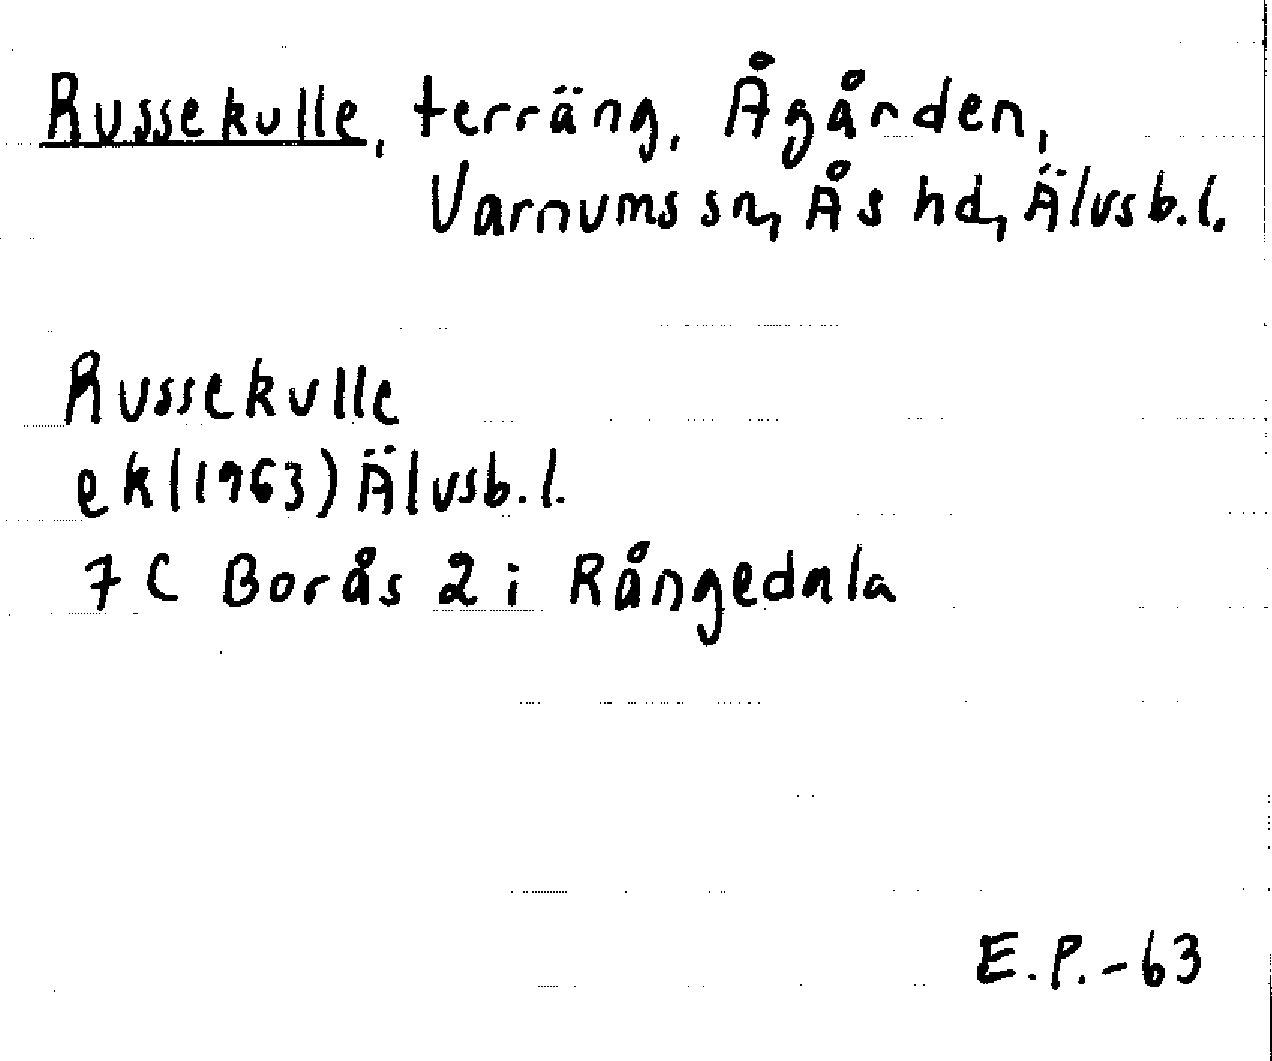 Russekulle, terräng, Ågården,
Varnums sn, Ås hd, Älvsb.l.
Russekulle
ek (1963) Älvsb.l.
7 C Borås 2 i Rångedala
E.P.-63